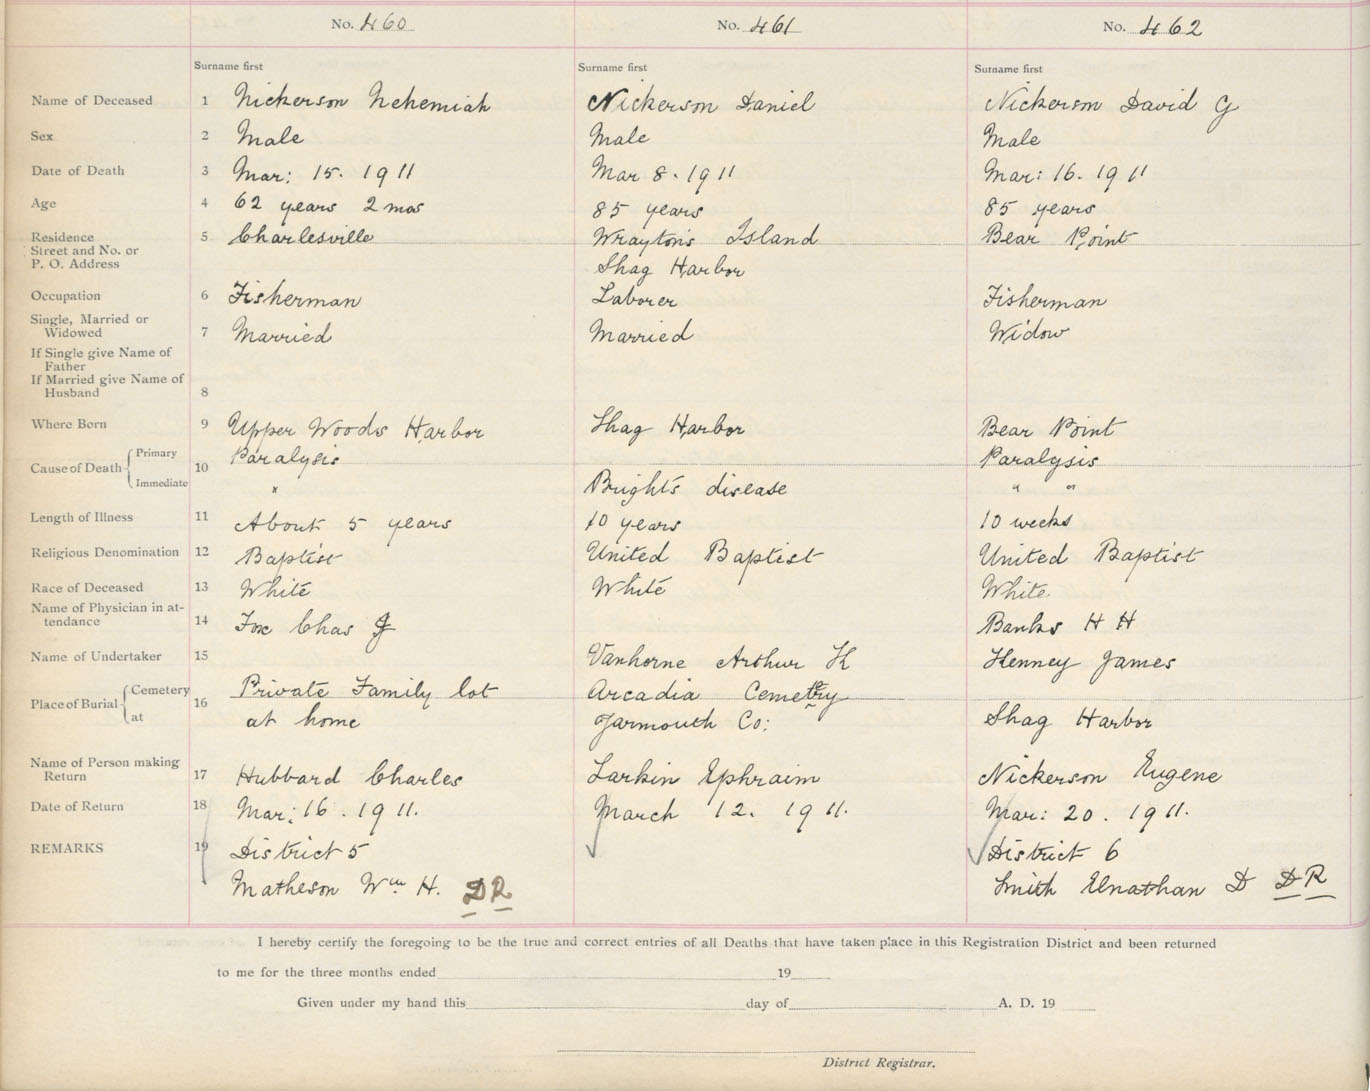 No. 460 No. 461 No. 462
Surname first Surname first Surname first
Name of Deceased 1 Nickerson Nehemiah Nickerson Daniel Nickerson David G
Sex 2 Male Male Male
Date of Death 3 Mar: 15. 1911 Mar 8. 1911 Mar: 16. 1911
Age 4 62 years 2 mos 85 years 85 years
Residence 5 Charlesville Wrayton's Island Bear Point
Street and No. or
P. O. Address Shag Harbor
Occupation 6 Fisherman Laborer Fisherman
Single, Married or
Widowed 7 Married Married Widow
If Single give Name of
Father
If Married give Name of
Husband 8
Where Born 9 Upper Woods Harbor Shag Harbor Bear Point
Cause of Death Primary 10 Paralysis Paralysis
Immediate " Bright's disease " "
Length of Illness 11 About 5 years 10 years 10 weeks
Religious Denomination 12 Baptist United Baptist United Baptist
Race of Deceased 13 White White White
Name of Physician in at-
tendance 14 Fox Chas J Banks H H
Name of Undertaker 15 Vanhorne Arthur K Kenney James
Place of Burial Cemetery 16 Private Family lot Arcadia Cemetery
at at home Yarmouth Co: Shag Harbor
Name of Person making
Return 17 Hubbard Charles Larkin Ephraim Nickerson Eugene
Date of Return 18 Mar: 16. 1911. March 12. 1911. Mar: 20. 1911.
REMARKS 19 District 5 District 6
Matheson Wm H. DR Smith Elnathan D DR
I hereby certify the foregoing to be the true and correct entries of all Deaths that have taken place in this Registration District and been returned
to me for the three months ended 19
Given under my hand this day of A. D. 19
District Registrar.